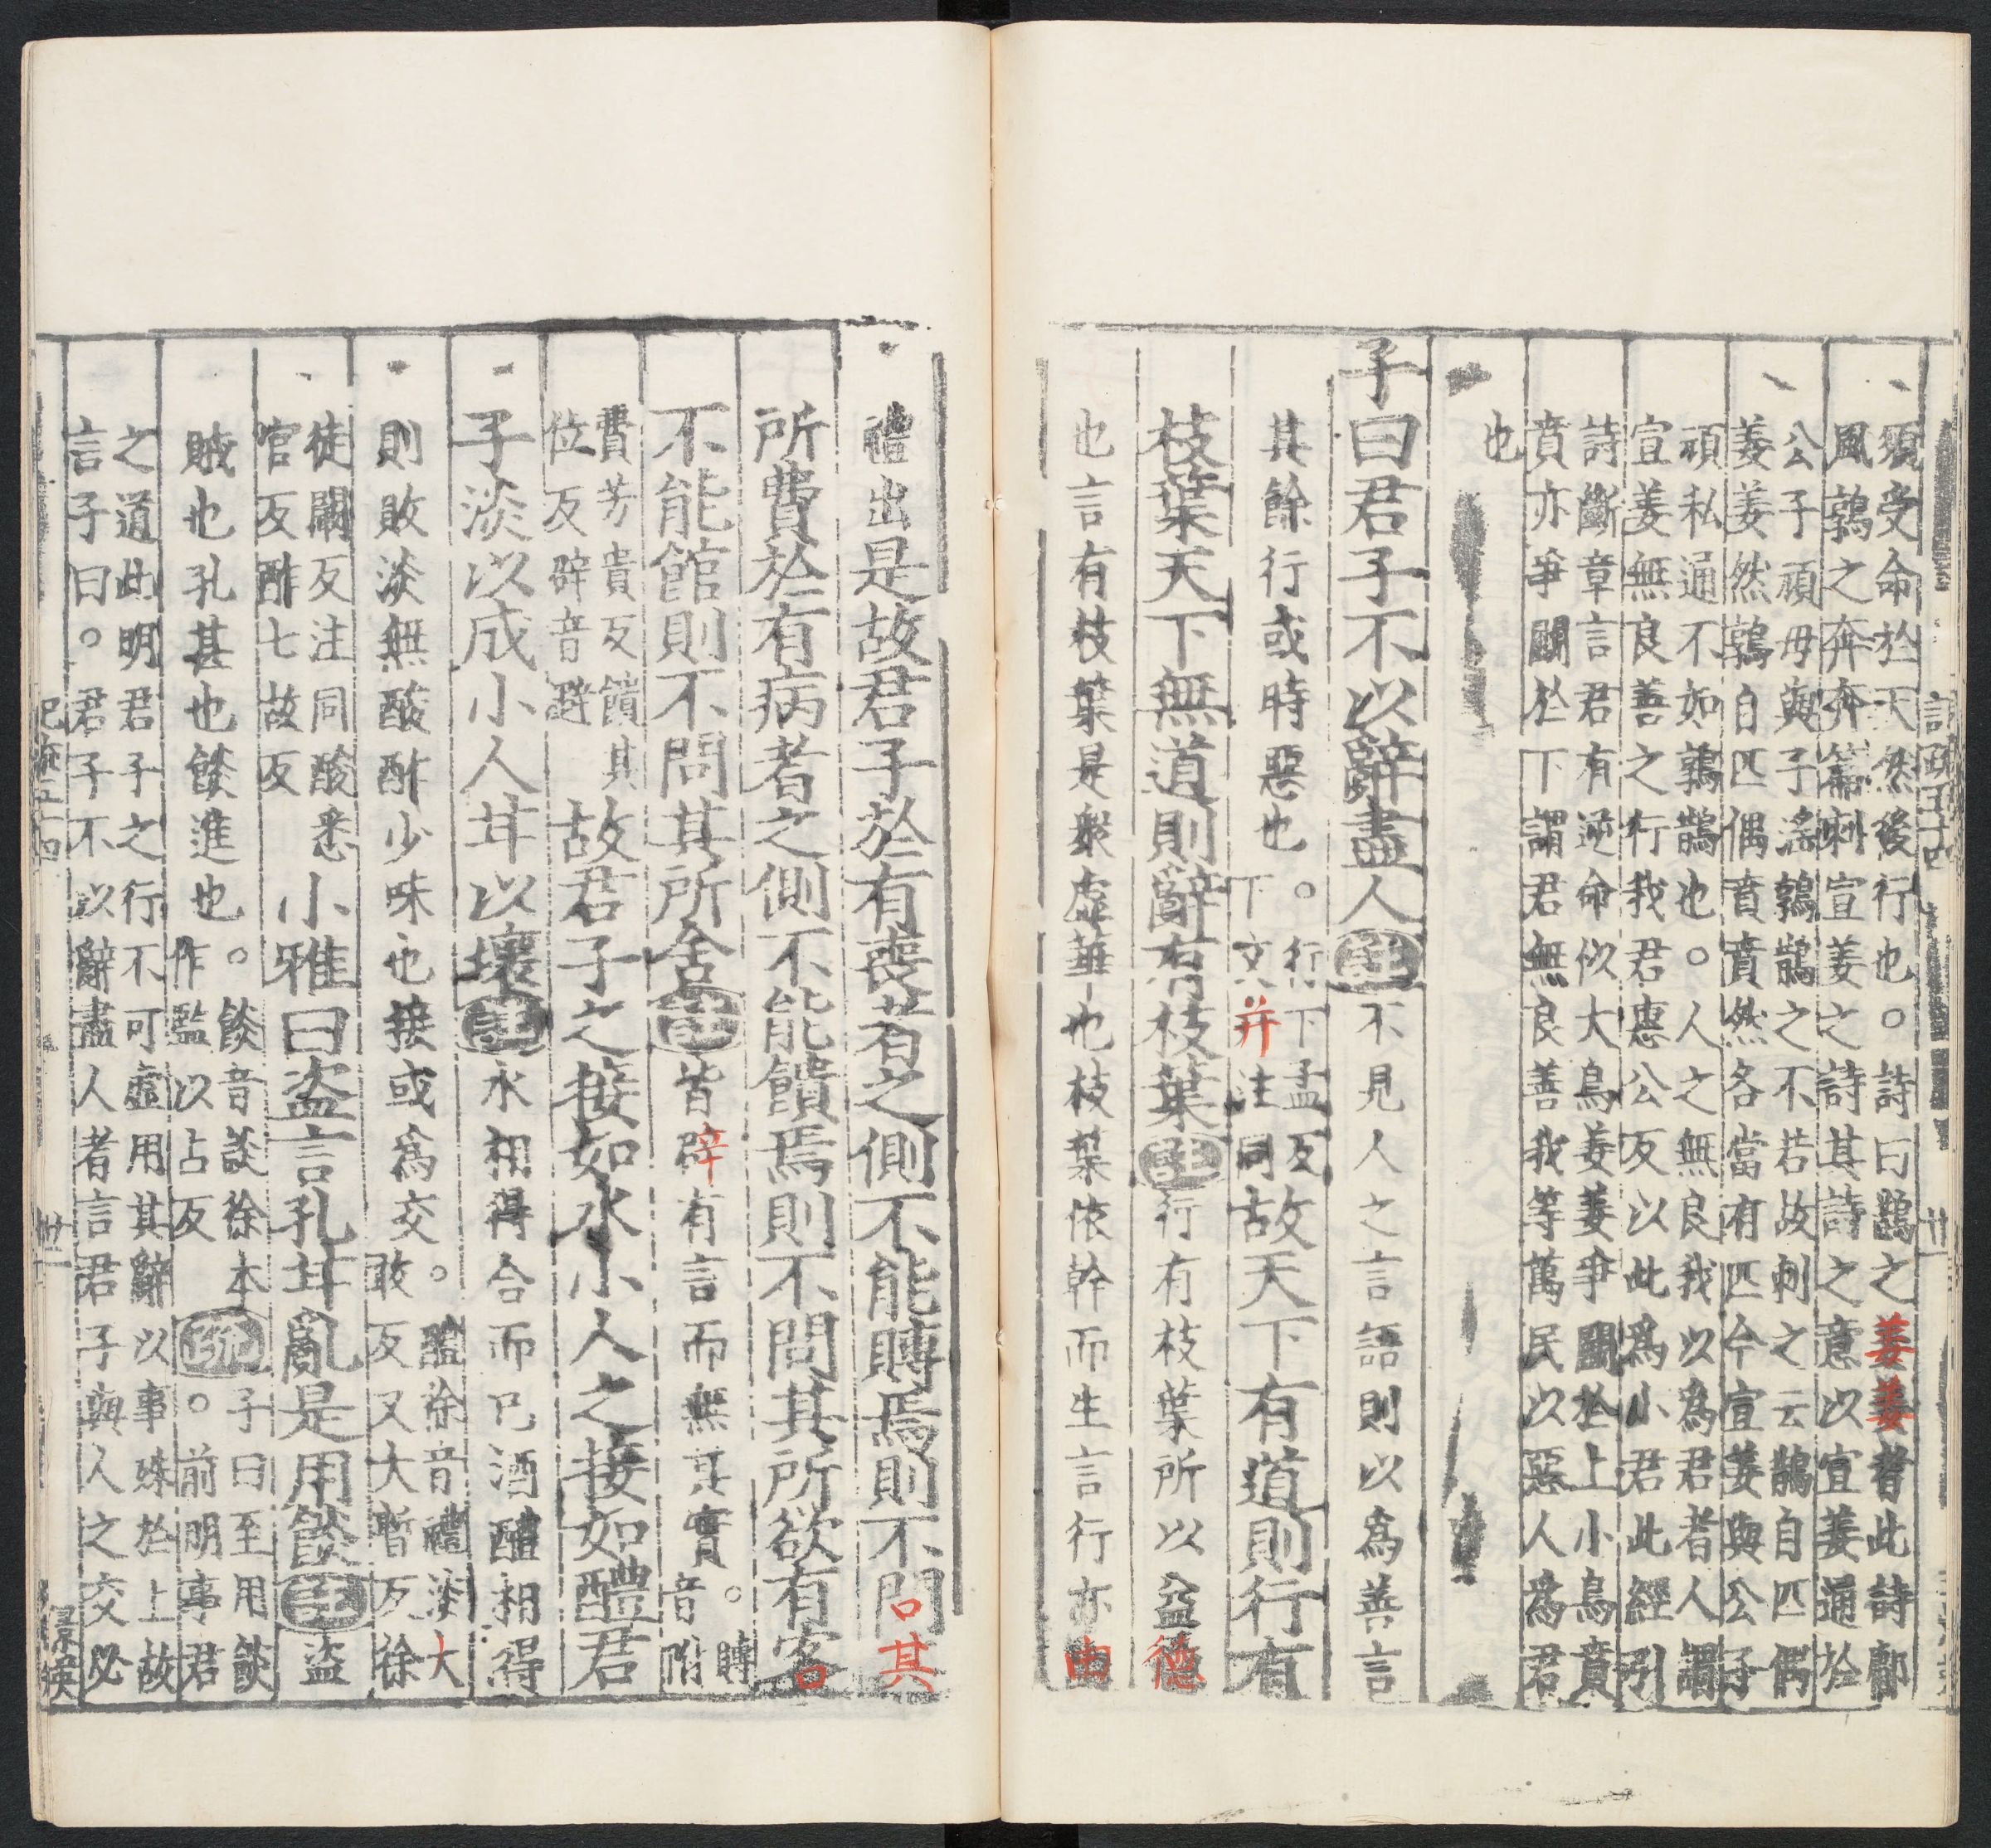 須受命於天然後行也。詩曰鵲之姜姜者此詩鄘
風鶉之奔奔篇刺宣姜之詩其詩之意以宣姜通於
公子頑母與子淫鶉鵲之不若故刺之云鵲自匹偶
姜姜然鶉自匹偶賁賁然各當有匹今宣姜與公子
頑私通不如鶉鵲也。人之無良我以為君者人謂
宣姜無良善之行我君惠公反以此為小君此經引
詩斷章言君有逆命似大鳥姜姜爭鬭於上小鳥賁
賁亦爭鬭於下謂君無良善我等萬民以惡人為君
也
子曰君子不以辭盡人注不見人之言語則以為善言
其餘行或時惡也。行下孟反
下文并注同故天下有道則行有
枝葉天下無道則辭有枝葉注行有枝葉所以益德
也言有枝葉是衆虛華也枝葉依幹而生言行亦由
禮出是故君子於有喪者之側不能賻焉則不問其
所費於有病者之側不能饋焉則不問其所欲有客
不能館則不問其所舍注皆辟有言而無其實。賻
音附
費芳貴反饋其
位反辟音避故君子之接如水小人之接如醴君
子淡以成小人甘以壞注水相得合而已酒醴相得
則敗淡無酸酢少味也接或為交。醴徐音禮淡大
敢反又大暫反徐
徒闞反注同酸悉
官反酢七故反小雅曰盜言孔甘亂是用餤注盜
賊也孔甚也餤進也。餤音談徐本
作鹽以占反疏子曰至用餤
。前明事君
之道此明君子之行不可虛用其辭以事殊於上故
言子曰。君子不以辭盡人者言君子與人之交必